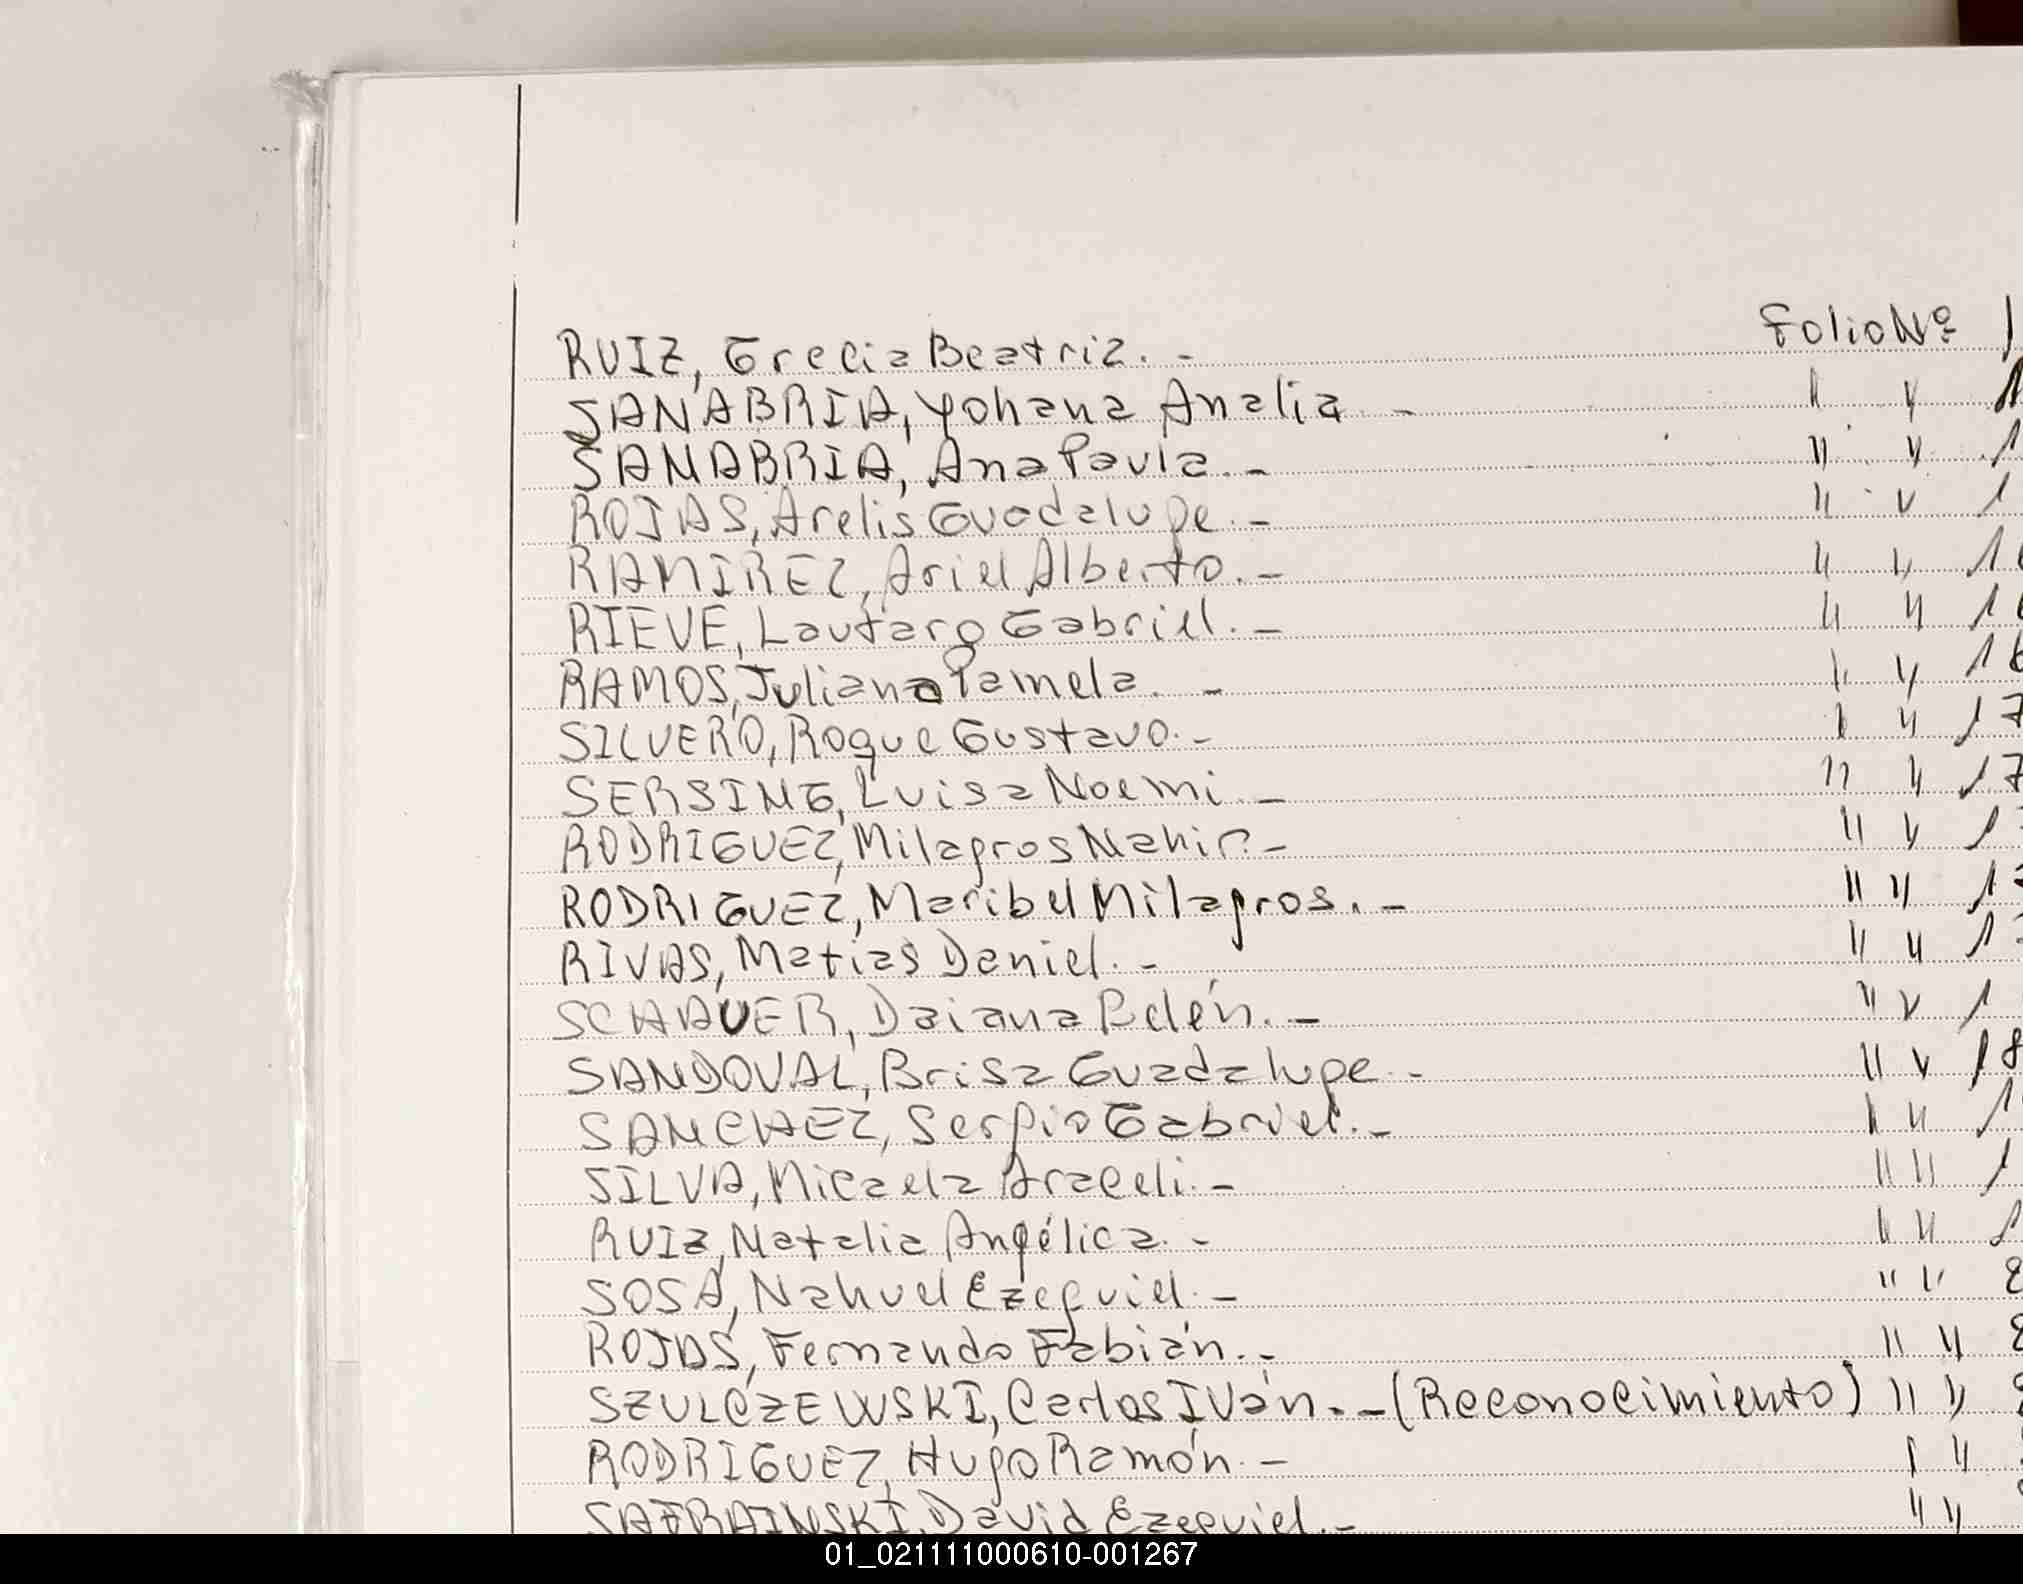 RUIZ, Grecia Beatriz.- Folio Nº 1
SANABRIA, Yohana Analia - " " 1
SANABRIA, Ana Paula.- " " 1
ROJAS, Arelis Guadalupe.- " " 1
RAMIREZ, Ariel Alberto.- " " 1
RIEVE, Lautaro Gabriel.- " " 1
RAMOS, Juliana Pamela.- " " 16
SILVERO, Roque Gustavo.- " " 17
SERSING, Luisa Noemi.- " " 17
RODRIGUEZ, Milagros Nahir.- " " 1
RODRIGUEZ, Maribel Milagros.- " " 1
RIVAS, Matias Daniel.- " " 1
SCHAUER, Daiana Belén.- " " 1
SANDOVAL, Brisa Guadalupe.- " " 18
SANCHEZ, Sergio Gabriel.- " " 1
SILVA, Micaela Araceli.- " " 1
RUIZ, Natalia Angélica.- " " 1
SOSA, Nahuel Ezequiel.- " " 8
ROJAS, Fernando Fabián.- " " 8
SZULCZEWSKI, Carlos Iván.-(Reconocimiento) " "
RODRIGUEZ, Hugo Ramón.- " "
SAFRAINSKI, David Ezequiel.- " "
01_021111000610-001267